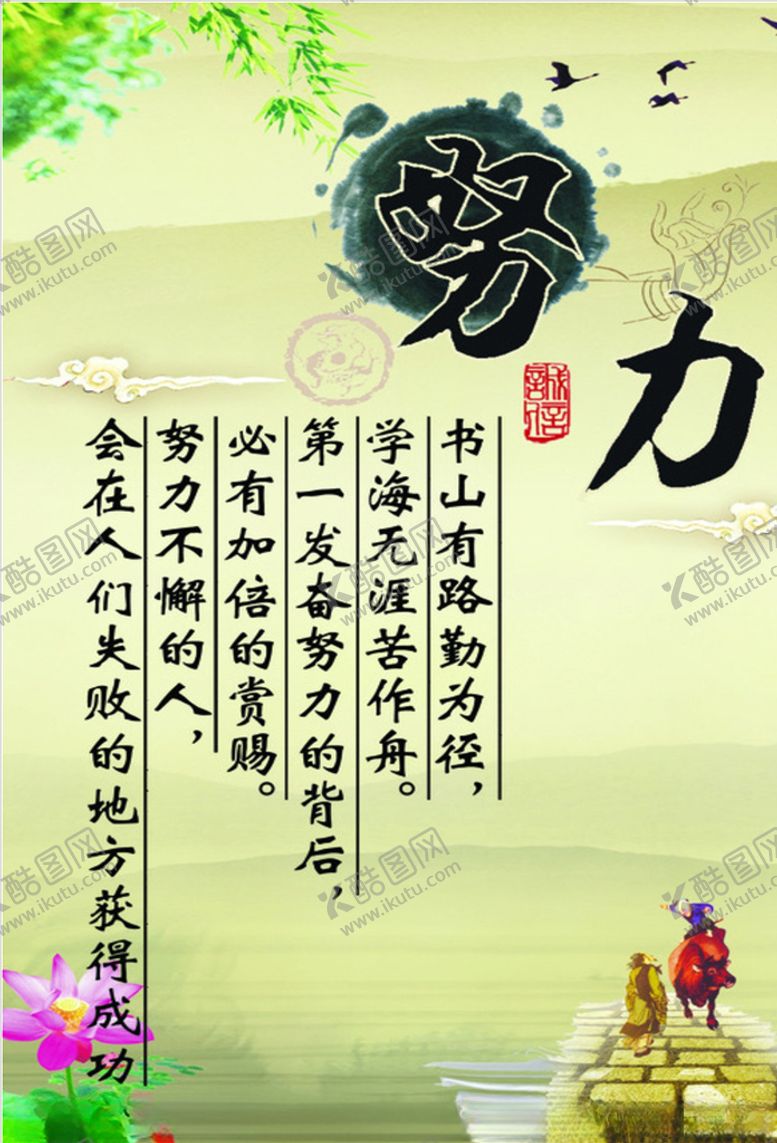 努力
誠信
书山有路勤为径，
学海无涯苦作舟。
第一发奋努力的背后，
必有加倍的赏赐。
努力不懈的人，
会在人们失败的地方获得成功
酷图网
www.ikutu.com